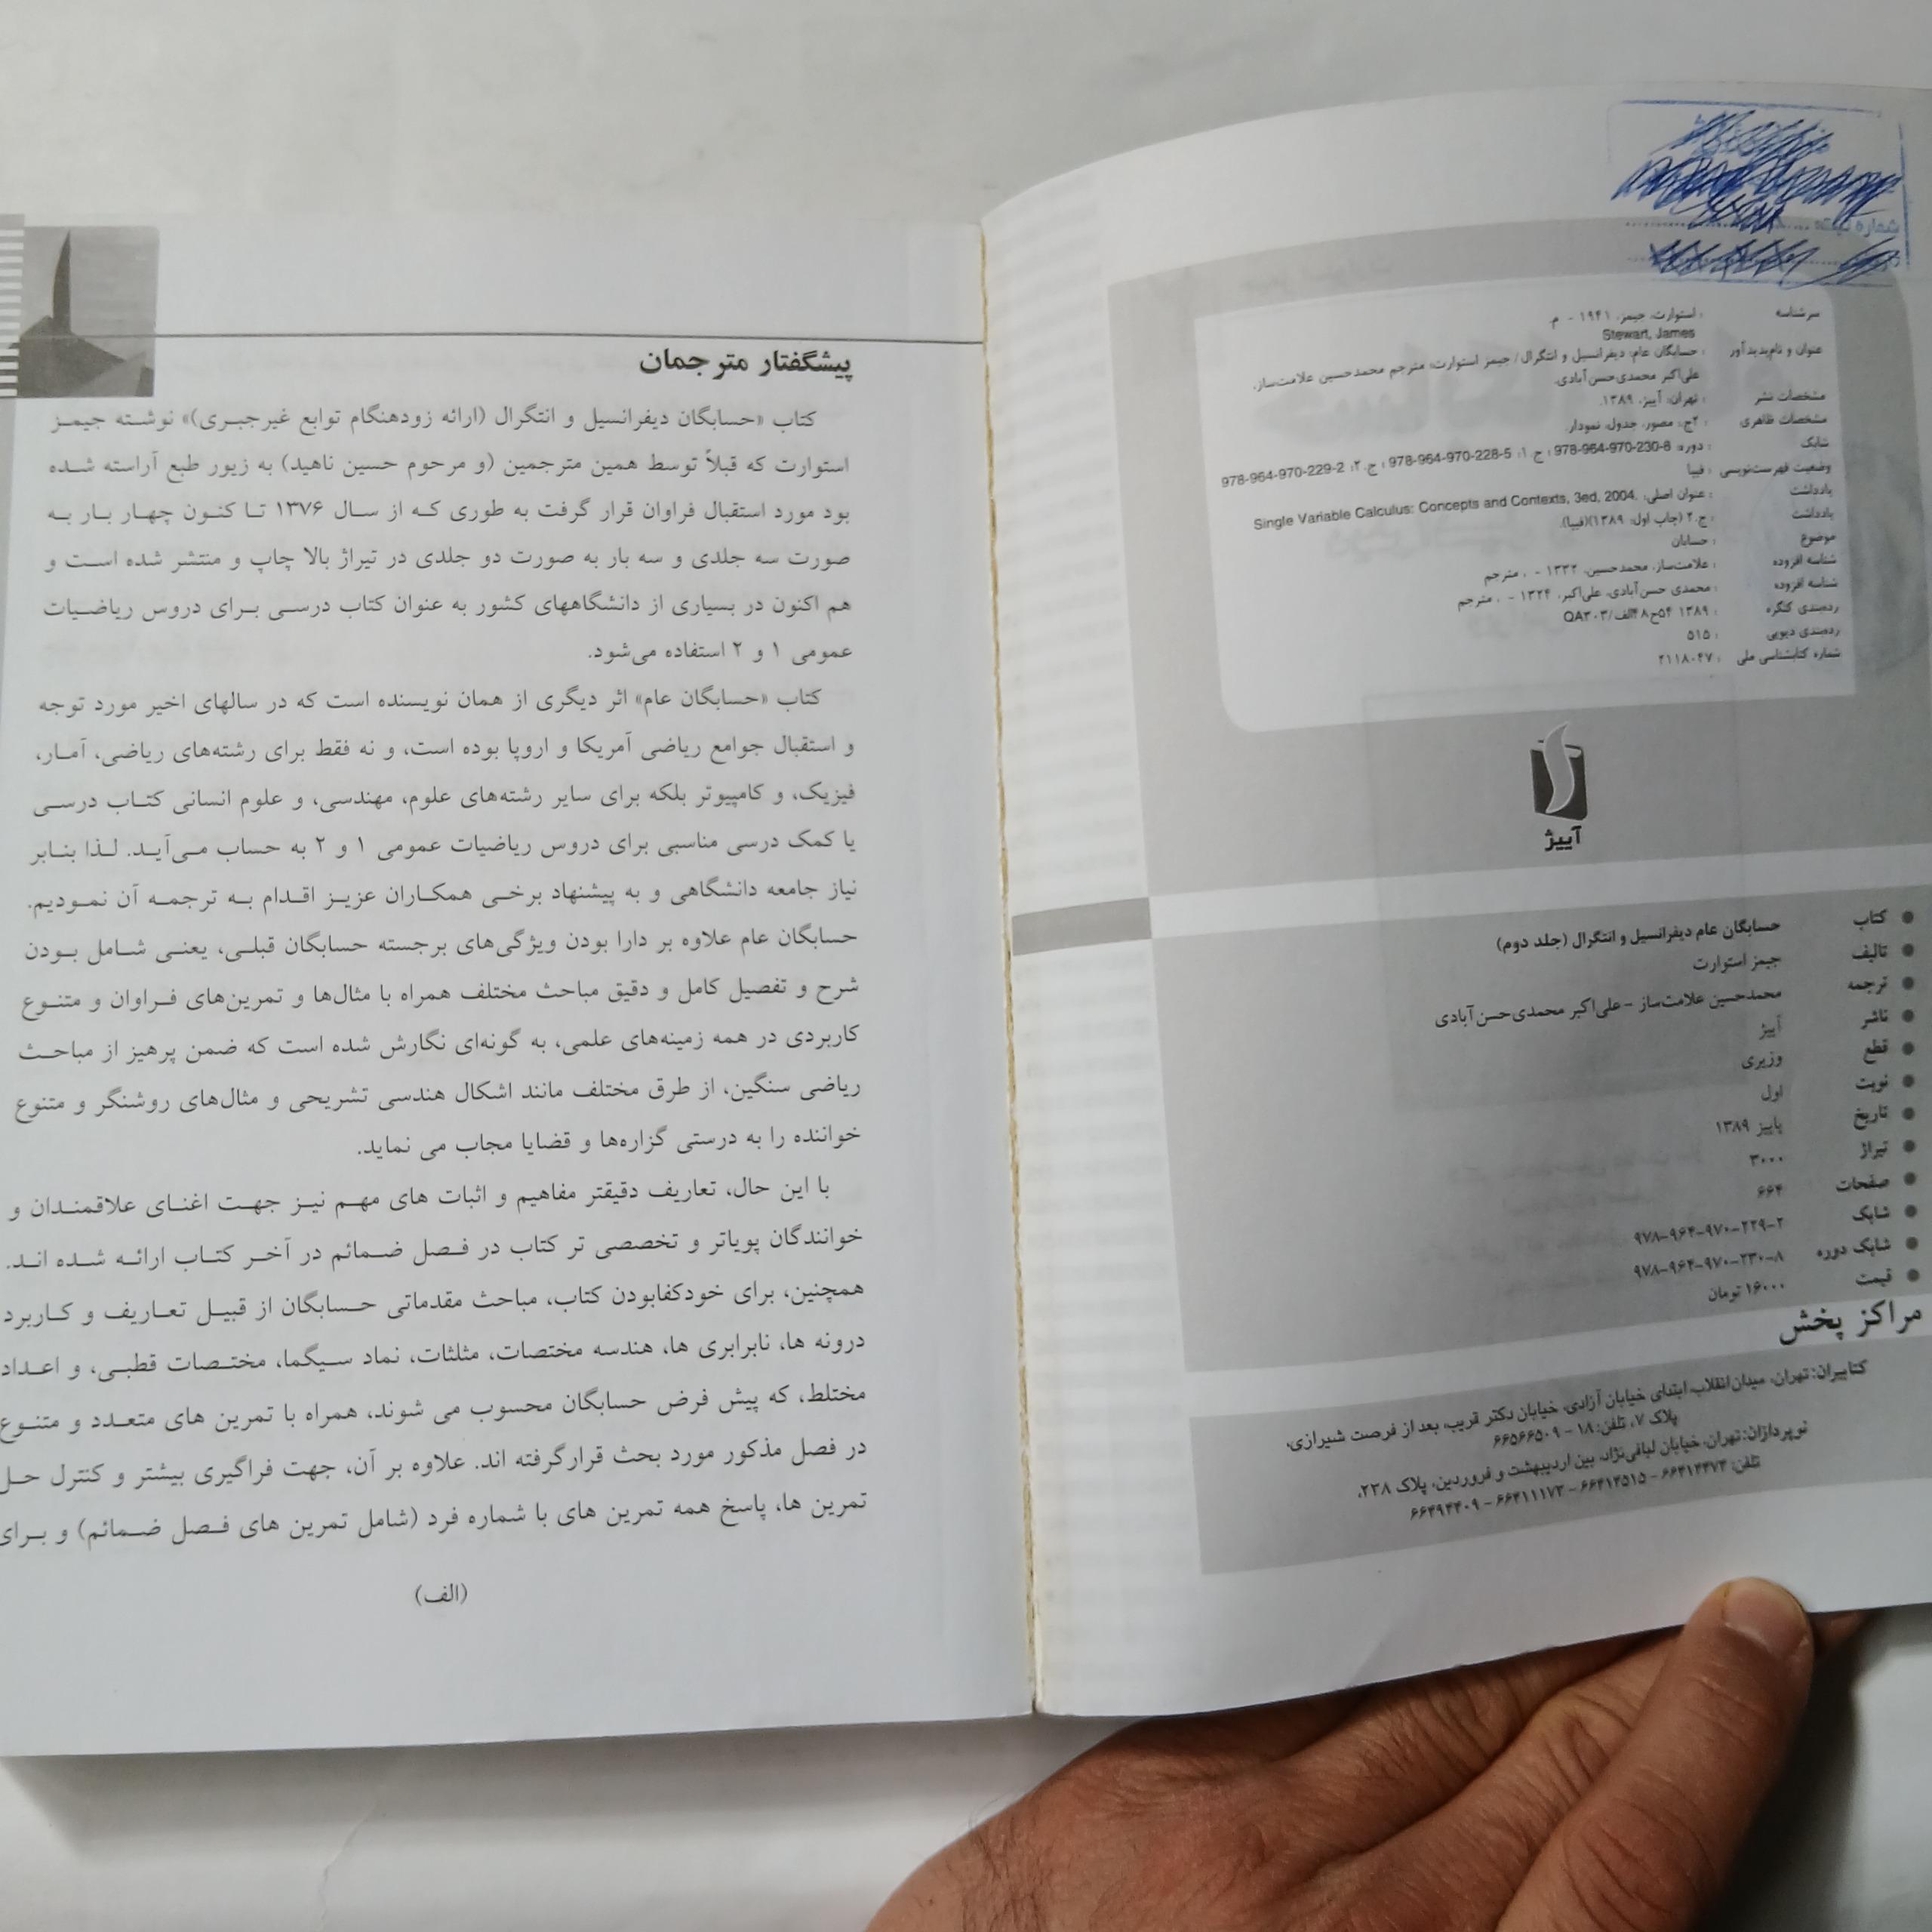 شماره ثبت
سرشناسه : استوارت، جیمز، ۱۹۴۱ - م.
Stewart, James
عنوان و نام‌پدیدآور : حسابگان عام: دیفرانسیل و انتگرال / جیمز استوارت؛ مترجم محمدحسین علامت‌ساز،
علی‌اکبر محمدی‌حسن‌آبادی.
مشخصات نشر : تهران: آییژ، ۱۳۸۹.
مشخصات ظاهری : ۲ج.: مصور، جدول، نمودار.
شابک : دوره: 978-964-970-230-8 ؛ ج.۱: 978-964-970-228-5 ؛ ج.۲: 978-964-970-229-2
وضعیت فهرست‌نویسی : فیپا
یادداشت : عنوان اصلی: Single Variable Calculus: Concepts and Contexts, 3ed, 2004.
یادداشت : ج.۲ (چاپ اول: ۱۳۸۹)(فیپا).
موضوع : حسابان
شناسه افزوده : علامت‌ساز، محمدحسین، ۱۳۳۲ - ، مترجم
شناسه افزوده : محمدی حسن‌آبادی، علی‌اکبر، ۱۳۲۴ - ، مترجم
رده‌بندی کنگره : ۱۳۸۹ ۵۴ح۸۴الف/QA۳۰۳
رده‌بندی دیویی : ۵۱۵
شماره کتابشناسی ملی : ۲۱۱۸۰۴۷
آییژ
کتاب حسابگان عام دیفرانسیل و انتگرال (جلد دوم)
تالیف جیمز استوارت
ترجمه محمدحسین علامت‌ساز - علی‌اکبر محمدی‌حسن‌آبادی
ناشر آییژ
قطع وزیری
نوبت اول
تاریخ پاییز ۱۳۸۹
تیراژ ۳۰۰۰
صفحات ۶۶۴
شابک ۹۷۸-۹۶۴-۹۷۰-۲۲۹-۲
شابک دوره ۹۷۸-۹۶۴-۹۷۰-۲۳۰-۸
قیمت ۱۶۰۰۰ تومان
مراکز پخش
کتابیران: تهران، میدان انقلاب، ابتدای خیابان آزادی، خیابان دکتر قریب، بعد از فرصت شیرازی،
پلاک ۷، تلفن: ۱۸ - ۶۶۵۶۶۵۰۹
نوپردازان: تهران، خیابان لبافی‌نژاد، بین اردیبهشت و فروردین، پلاک ۲۳۸،
تلفن: ۶۶۴۱۴۴۷۳ - ۶۶۴۱۳۵۱۵ - ۶۶۴۱۱۱۷۳ - ۶۶۴۹۴۴۰۹
پیشگفتار مترجمان
کتاب «حسابگان دیفرانسیل و انتگرال (ارائه زودهنگام توابع غیرجبری)» نوشته جیمز
استوارت که قبلاً توسط همین مترجمین (و مرحوم حسین ناهید) به زیور طبع آراسته شده
بود مورد استقبال فراوان قرار گرفت به طوری که از سال ۱۳۷۶ تا کنون چهار بار به
صورت سه جلدی و سه بار به صورت دو جلدی در تیراژ بالا چاپ و منتشر شده است و
هم اکنون در بسیاری از دانشگاههای کشور به عنوان کتاب درسی برای دروس ریاضیات
عمومی ۱ و ۲ استفاده می‌شود.
کتاب «حسابگان عام» اثر دیگری از همان نویسنده است که در سالهای اخیر مورد توجه
و استقبال جوامع ریاضی آمریکا و اروپا بوده است، و نه فقط برای رشته‌های ریاضی، آمار،
فیزیک، و کامپیوتر بلکه برای سایر رشته‌های علوم، مهندسی، و علوم انسانی کتاب درسی
یا کمک درسی مناسبی برای دروس ریاضیات عمومی ۱ و ۲ به حساب می‌آید. لذا بنابر
نیاز جامعه دانشگاهی و به پیشنهاد برخی همکاران عزیز اقدام به ترجمه آن نمودیم.
حسابگان عام علاوه بر دارا بودن ویژگی‌های برجسته حسابگان قبلی، یعنی شامل بودن
شرح و تفصیل کامل و دقیق مباحث مختلف همراه با مثال‌ها و تمرین‌های فراوان و متنوع
کاربردی در همه زمینه‌های علمی، به گونه‌ای نگارش شده است که ضمن پرهیز از مباحث
ریاضی سنگین، از طرق مختلف مانند اشکال هندسی تشریحی و مثال‌های روشنگر و متنوع
خواننده را به درستی گزاره‌ها و قضایا مجاب می نماید.
با این حال، تعاریف دقیقتر مفاهیم و اثبات های مهم نیز جهت اغنای علاقمندان و
خوانندگان پویاتر و تخصصی تر کتاب در فصل ضمائم در آخر کتاب ارائه شده اند.
همچنین، برای خودکفابودن کتاب، مباحث مقدماتی حسابگان از قبیل تعاریف و کاربرد
درونه ها، نابرابری ها، هندسه مختصات، مثلثات، نماد سیگما، مختصات قطبی، و اعداد
مختلط، که پیش فرض حسابگان محسوب می شوند، همراه با تمرین های متعدد و متنوع
در فصل مذکور مورد بحث قرارگرفته اند. علاوه بر آن، جهت فراگیری بیشتر و کنترل حل
تمرین ها، پاسخ همه تمرین های با شماره فرد (شامل تمرین های فصل ضمائم) و برای
(الف)